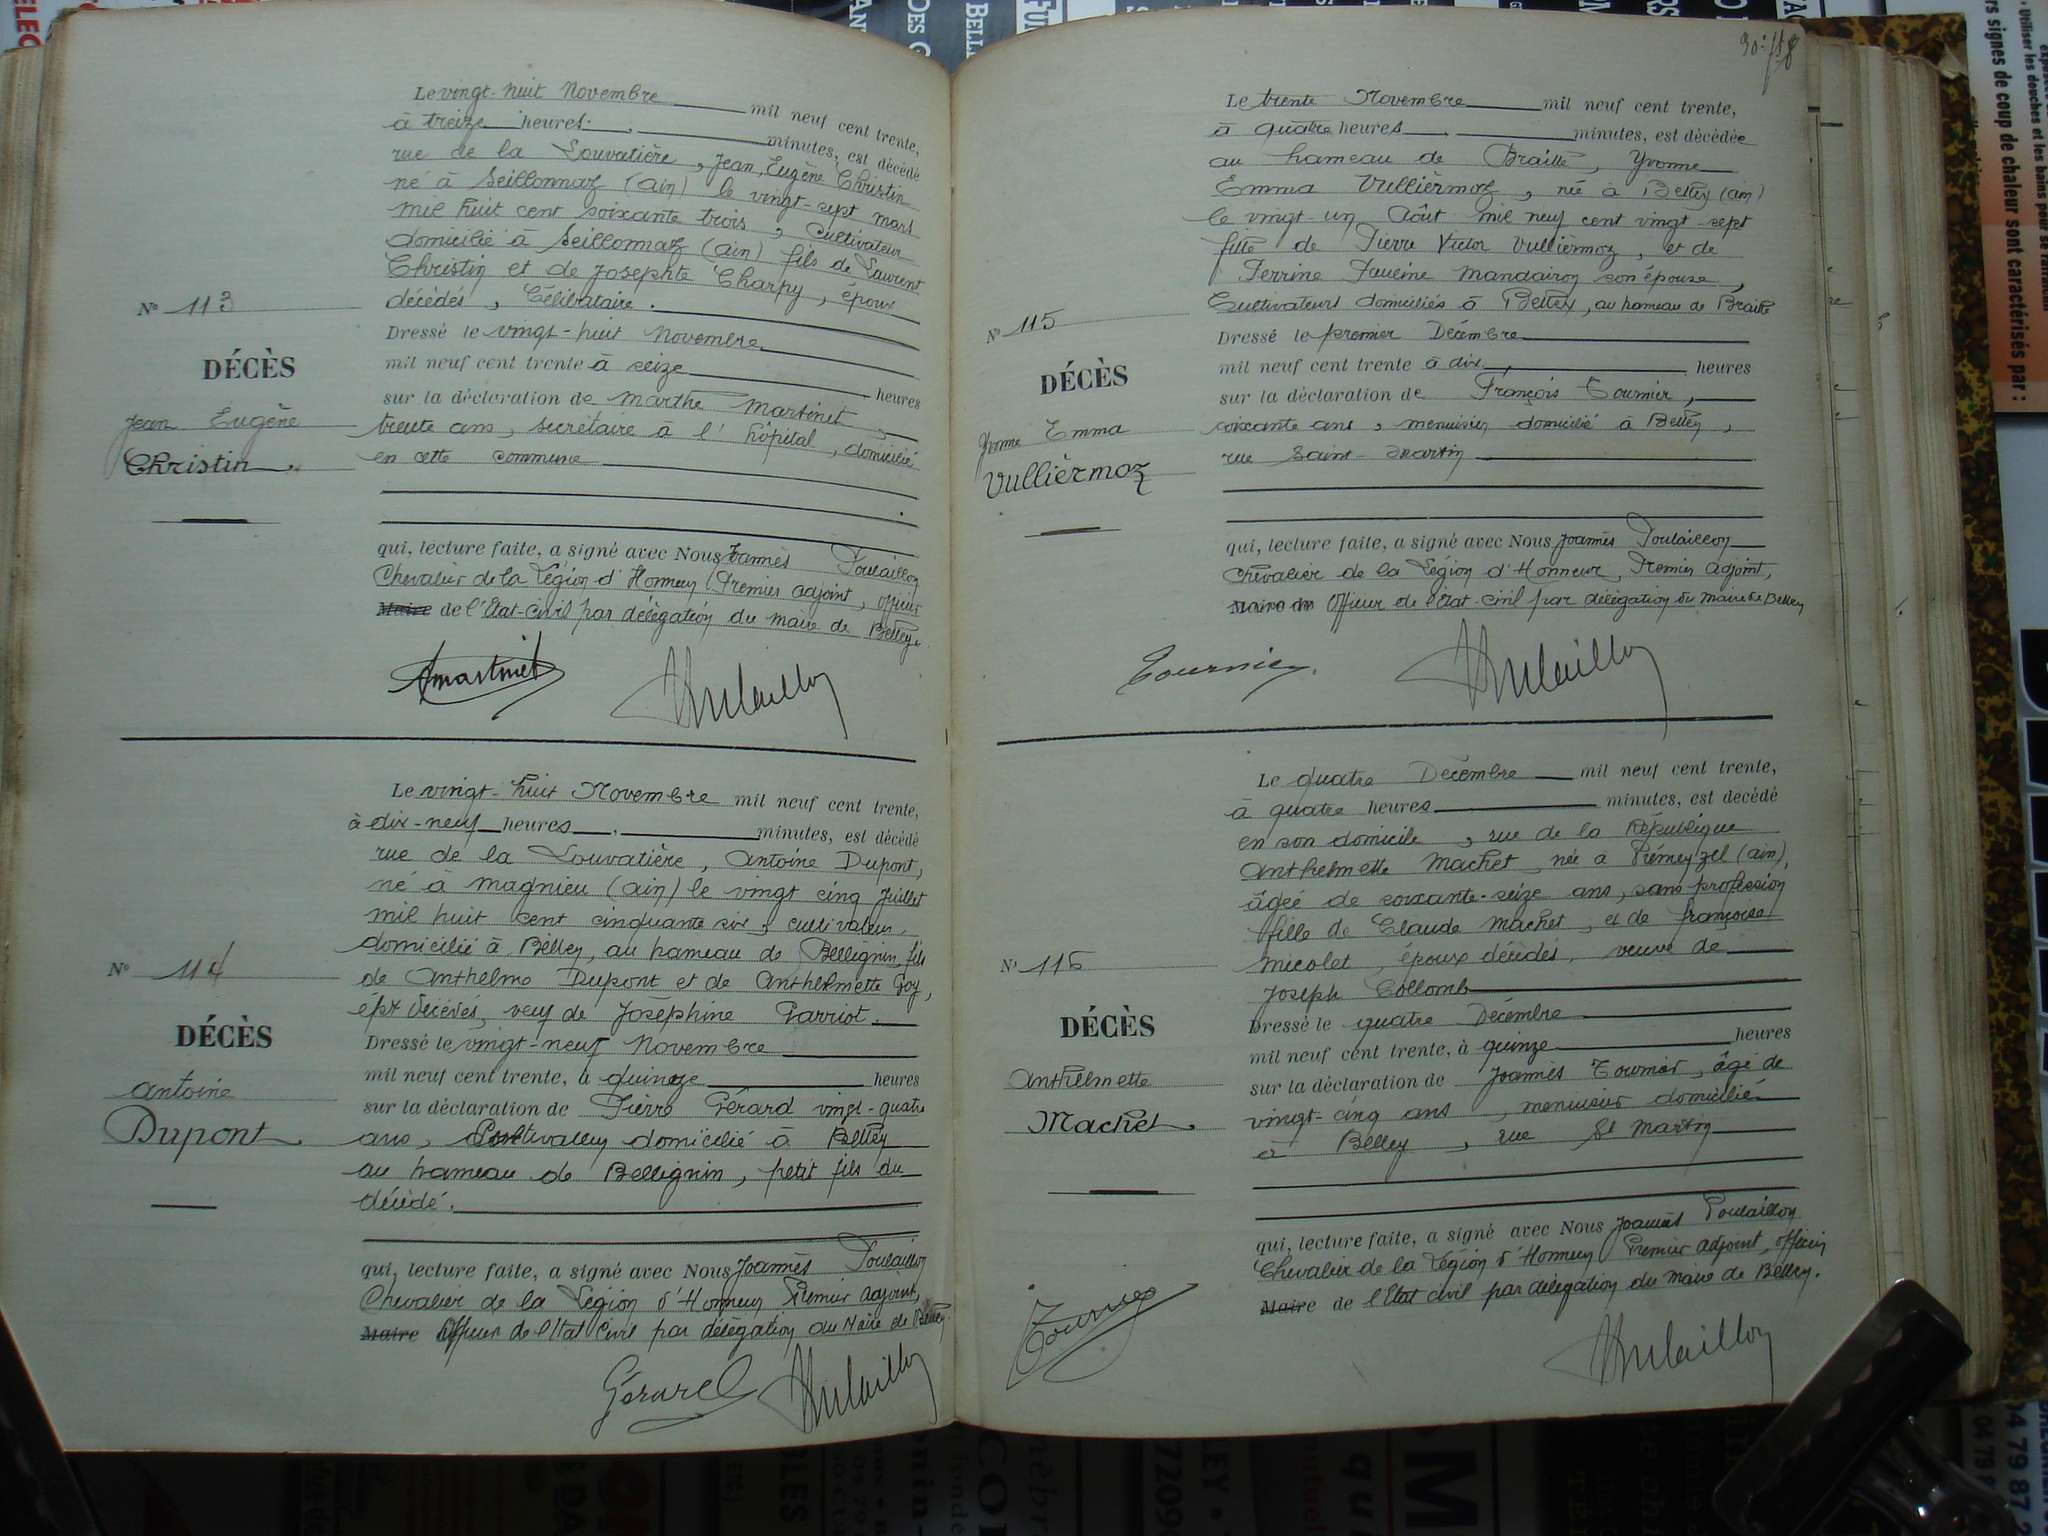 Le vingt-huit Novembre mil neuf cent trente,
à treize heures minutes, est décédé
rue de la Louvatière, Jean, Eugène Christin
né à Seillonnaz (ain) le vingt-sept mars
mil huit cent soixante trois, cultivateur
domicilié à Seillonnaz (ain) fils de Laurent
Christin et de Josephte Charpy, époux
décédés, Célibataire.
N° 113
Dressé le vingt-huit Novembre
mil neuf cent trente à seize heures
DÉCÈS
sur la déclaration de Marthe Martinet,
Jean Eugène
trente ans, secrétaire à l'hôpital, domicilié
Christin.
en cette commune
qui, lecture faite, a signé avec Nous Joannès Poulaillon
Chevalier de la Légion d'Honneur, Premier adjoint, officier
Maire de l'Etat-civil par délégation du maire de Belley.
Martinet Poulaillon
Le vingt-huit Novembre mil neuf cent trente,
à dix-neuf heures minutes, est décédé
rue de la Louvatière, Antoine Dupont,
né à Magnieu (ain) le vingt cinq Juillet
mil huit cent cinquante six, cultivateur,
domicilié à Belley, au hameau de Bellignin, fils
N° 114
de Anthelme Dupont et de Anthelmette Goy,
épx décédés, veuf de Joséphine Garriot.
DÉCÈS
Dressé le vingt-neuf Novembre
mil neuf cent trente, à quinze heures
Antoine
sur la déclaration de Pierre Gérard vingt-quatre
Dupont
ans, cultivateur domicilié à Belley
au hameau de Bellignin, petit fils du
décédé.
qui, lecture faite, a signé avec Nous Joannès Poulaillon
Chevalier de la Légion d'Honneur Premier adjoint,
Maire Officier de l'Etat Civil par délégation du Maire de Belley.
Gérard Poulaillon
Le trente Novembre mil neuf cent trente,
à quatre heures minutes, est décédée
au hameau de Braille, Yvonne
Emma Vulliermoz, née à Belley (ain)
le vingt-un Août mil neuf cent vingt-sept
fille de Pierre Victor Vulliermoz, et de
Perrine Pauline Mandairon son épouse,
Cultivateurs domiciliés à Belley, au hameau de Braille
N° 115
Dressé le premier Décembre
mil neuf cent trente à dix, heures
DÉCÈS
sur la déclaration de François Tournier,
Yvonne Emma
soixante ans, menuisier domicilié à Belley,
Vullièrmoz
rue Saint-Martin
qui, lecture faite, a signé avec Nous Joannès Poulaillon
Chevalier de la Légion d'Honneur, Premier adjoint,
Maire de Officier de l'Etat-civil par délégation du maire de Belley
Tournier. Poulaillon
Le quatre Décembre mil neuf cent trente,
à quatre heures minutes, est décédé
en son domicile, rue de la République
Anthelmette Machet, née à Prémeyzel (ain),
âgée de soixante-seize ans, sans profession
fille de Claude Machet, et de françoise
N° 116
Micolet, époux décédés, veuve de
Joseph Collomb
DÉCÈS
Dressé le quatre Décembre
mil neuf cent trente, à quinze heures
Anthelmette
sur la déclaration de Joannès Tournier, âgé de
Machet
vingt-cinq ans, menuisier domicilié
à Belley, rue St Martin
qui, lecture faite, a signé avec Nous Joannès Poulaillon
Chevalier de la Légion d'Honneur Premier adjoint, officier
Maire de l'Etat civil par délégation du maire de Belley.
Poulaillon
rs signes de coup de chaleur sont caractérisés par :